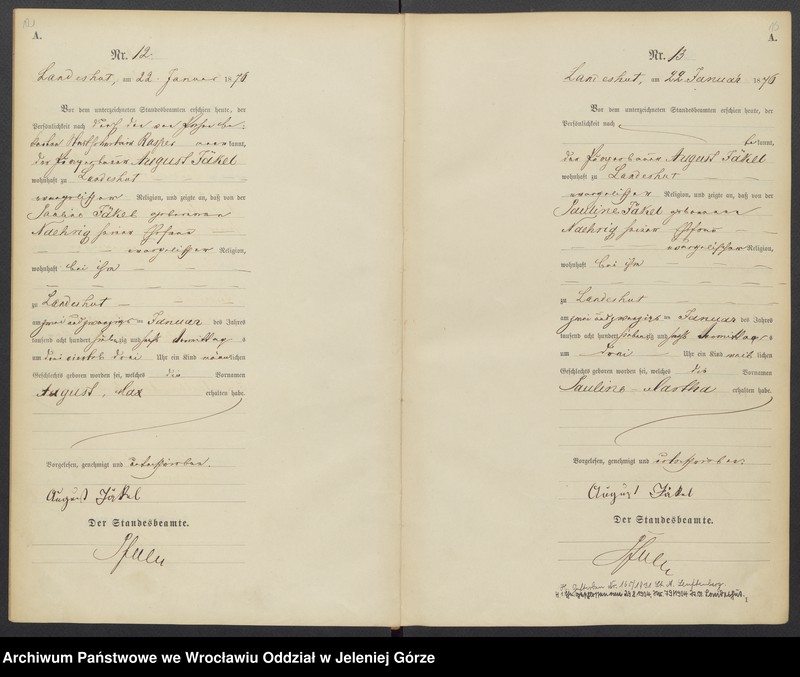 A.
Nr. 12
Landeshut, am 22 Januar 1876
Vor dem unterzeichneten Standesbeamten erschien heute, der
Persönlichkeit nach
kannt,
der August Täkel
wohnhaft zu Landeshut
evangelischer Religion, und zeigte an, daß von der
Pauline Täkel geborenen
Naehrig seiner Ehefrau
evangelischer Religion,
wohnhaft bei ihm
zu Landeshut
am zwei und zwanzigsten Januar des Jahres
tausend acht hundert siebenzig und sechs Vormittags
um drei viertel drei Uhr ein Kind männlichen
Geschlechts geboren worden sei, welches die Vornamen
August, Max erhalten habe.
Vorgelesen, genehmigt und unterschrieben.
August Täkel
Der Standesbeamte.
A.
Nr. 13
Landeshut, am 22 Januar 1876
Vor dem unterzeichneten Standesbeamten erschien heute, der
Persönlichkeit nach
bekannt,
der August Täkel
wohnhaft zu Landeshut
evangelischer Religion, und zeigte an, daß von der
Pauline Täkel geborenen
Naehrig seiner Ehefrau
evangelischer Religion,
wohnhaft bei ihm
zu Landeshut
am zwei und zwanzigsten Januar des Jahres
tausend acht hundert siebenzig und sechs Vormittags
um drei Uhr ein Kind weiblichen
Geschlechts geboren worden sei, welches die Vornamen
Pauline Martha erhalten habe.
Vorgelesen, genehmigt und unterschrieben.
August Täkel
Der Standesbeamte.
Archiwum Państwowe we Wrocławiu Oddział w Jeleniej Górze